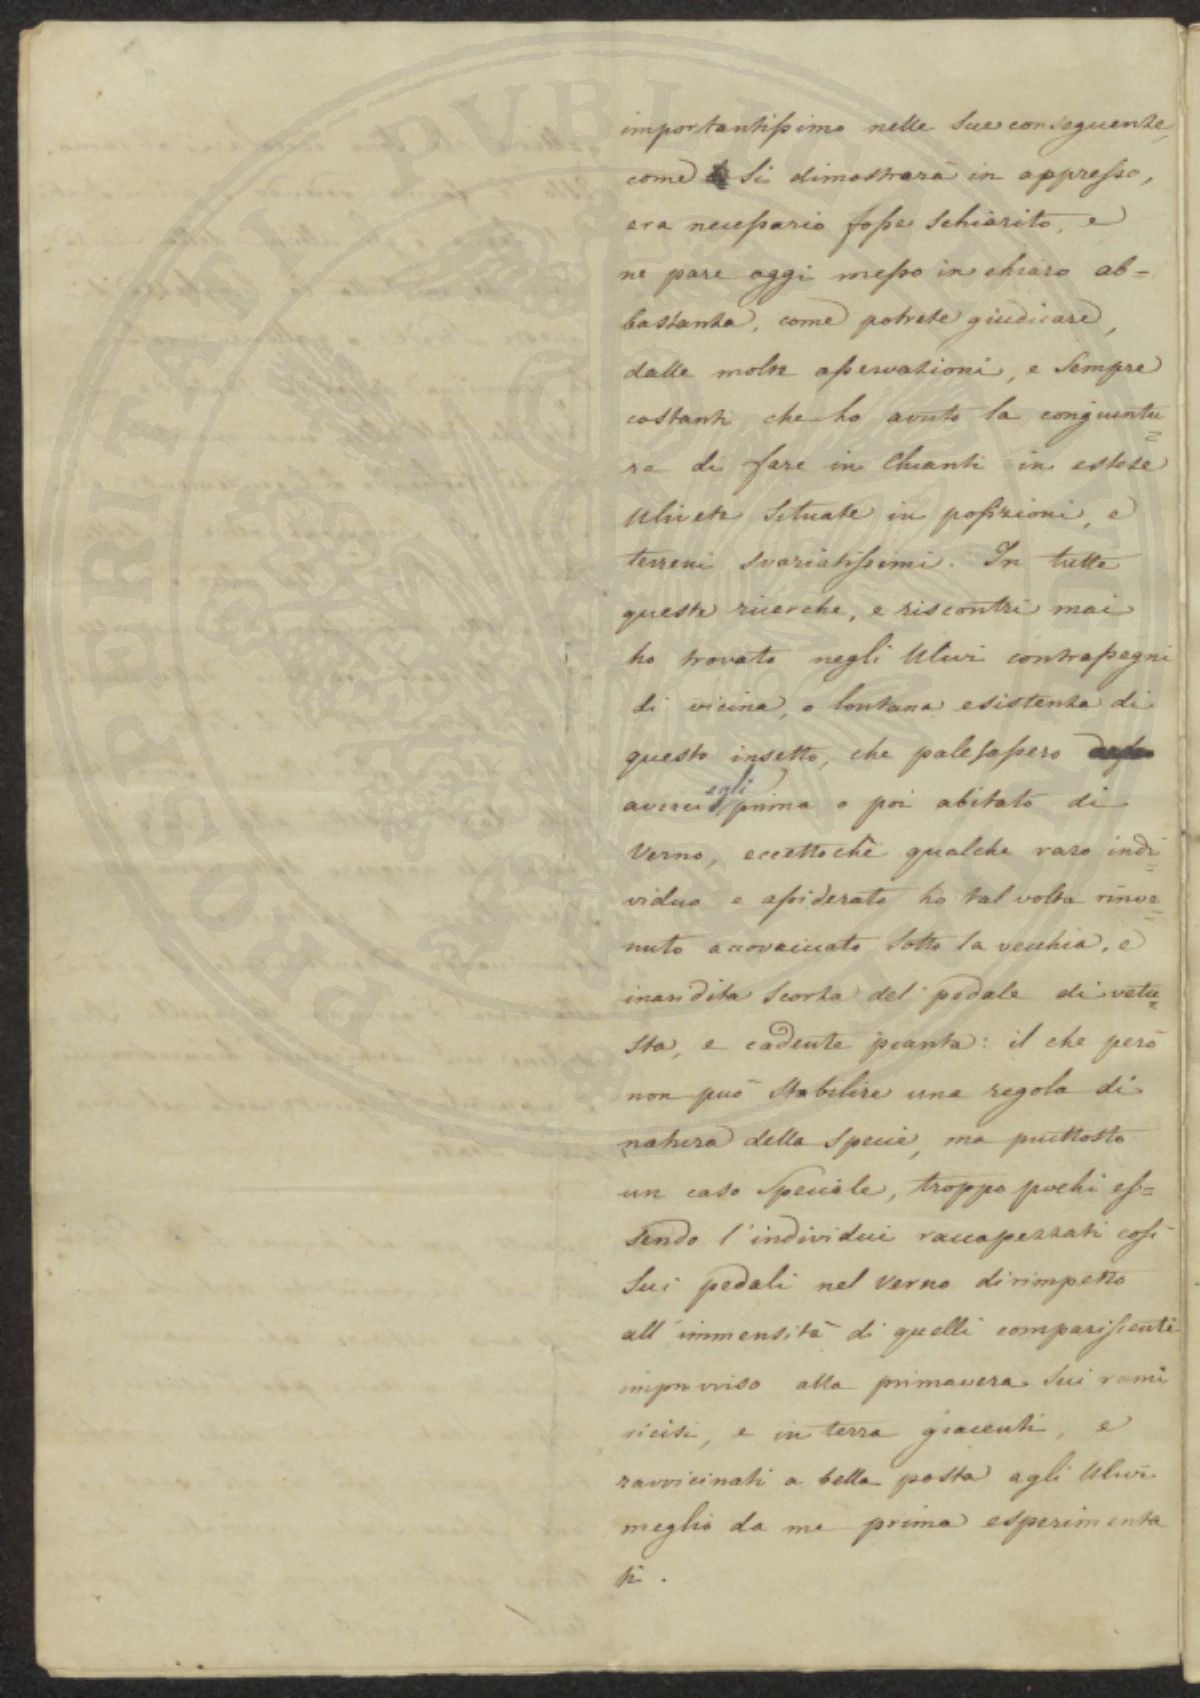 importantissimo nelle sue conseguenze,
come si dimostrerà in appresso,
era necessario fosse schiarito, e
ne pare oggi messo in chiaro ab=
bastanza, come potrete giudicare,
dalle molte asservazioni, e sempre
costanti che ho avuto la congiuntu=
ra di fare in Chianti in estese
Ulivete situate in posizioni, e
terreni svariatissimi. In tutte
queste ricerche, e riscontri mai
ho trovato negli Ulivi contrassegni
di vicina, o lontana esistenza di
questo insetto, che palesassero
averci egli prima o poi abitato di
Verno, eccettochè qualche raro indi=
viduo e assiderato ho tal volta rinve=
nuto accovacciato sotto la vecchia, e
inaridita scorza del pedale di vetu=
sta, e cadente pianta: il che però
non può stabilire una regola di
natura della specie, ma piuttosto
un caso speciale, troppo pochi es=
sendo l'individui raccapezzati così
sui pedali nel Verno dirimpetto
all'immensità di quelli compariscenti
improvviso alla primavera sui rami
recisi, e in terra giacenti, e
ravvicinati a bella posta agli Ulivi
meglio da me prima esperimenta
ti.
PROSPERITATI PUBLICAE